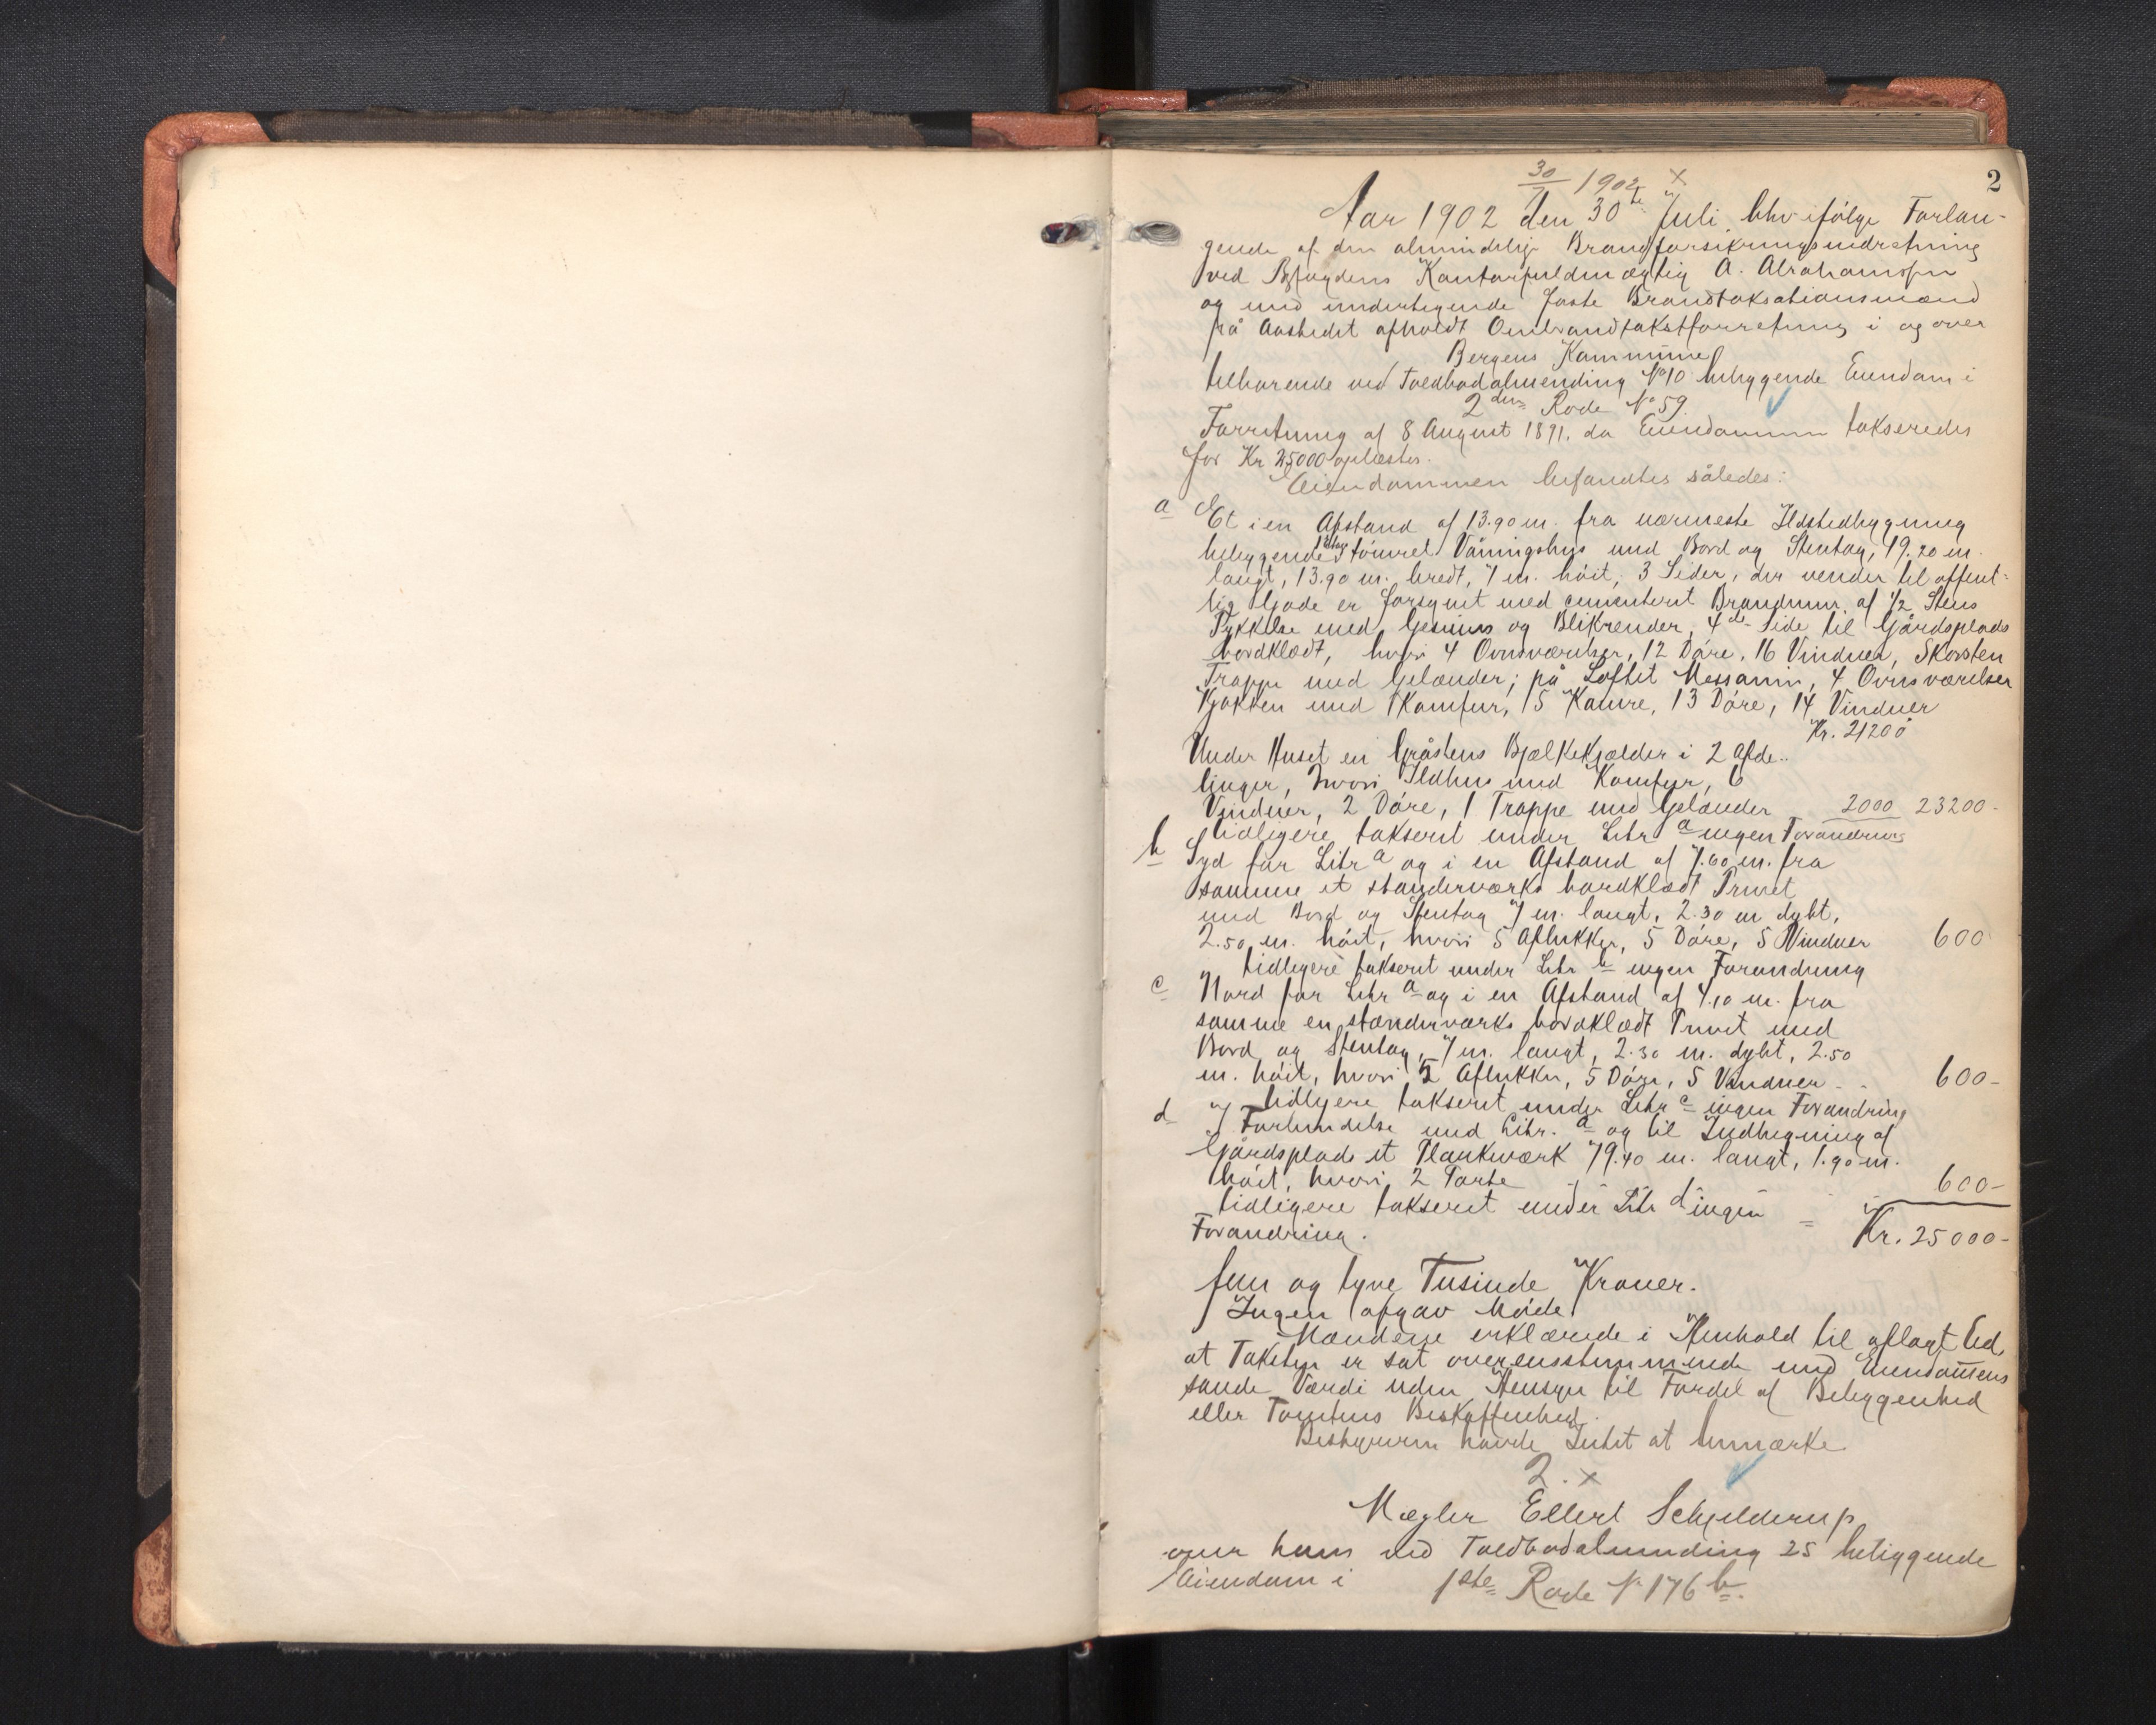 2
30/7 1902 ×
Aar 1902 den 30te Juli blev ifølge Forlan-
gende af den almindelige Brandforsikringsindretning
ved Byfogdens Kontorfuldmægtig A. Abrahamsen
og med undertegnede faste Brandtakstationsmænd
på Aastedet afholdt Ombrandtakstforretning i og over
Bergens Kommune
tilhørende ved Toldbodalmending No 10 beliggende Eiendom i
2den Rode No 59.
Forretning af 8 August 1891, da Eiendommen takseredes
for Kr 25000 oplæstes.
Eiendommen befandtes således:
a Et i en Afstand af 13.90 m. fra nærmeste Ildstedbygning
beliggende 1 Etages tømret Våningshus med Bord og Stentag, 19.20 m.
langt, 13.90 m. bredt, 7 m. høit, 3 Sider, der vender til offent-
lig Gade er forsynet med cementeret Brandmur af 1/2 Stens
Tykkelse med Gesims og Blikrender, 4de Side til Gårdsplads
bordklædt, hvori 4 Ovnsværelser, 12 Døre, 16 Vinduer, Skorsten
Trappe med Gelænder; på Loftet Messanin, 4 Ovnsværelser
Kjøkken med 1 Komfur, 5 Kamre, 13 Døre, 14 Vinduer
Kr. 21200
Under Huset en Gråstens Bjælkekjælder i 2 Afde-
linger, hvori Ildhus med Komfyr, 6
Vinduer, 2 Døre, 1 Trappe med Gelænder 2000 23200-
tidligere takseret under Litr a ingen Forandring
b Syd for Litr a og i en Afstand af 7.60 m. fra
samme et standerværks bordklædt Privet
med Bord og Stentag 7 m. langt, 2.30 m dybt,
2.50 m. høit, hvori 5 Aflukker, 5 Døre, 5 Vinduer 600
tidligere takseret under Litr b ingen Forandring
c Nord for Litr a og i en Afstand af 4.10 m. fra
samme en standerværks bordklædt Privet med
Bord og Stentag, 7 m. langt, 2.30 m. dybt, 2.50
m. høit, hvori 5 Aflukker, 5 Døre, 5 Vinduer - - 600-
tidligere takseret under Litr c ingen Forandring
d I Forbindelse med Litr. a og til Indhegning af
Gårdsplads et Plankeværk 79.40 m. langt, 1.90 m.
høit, hvori 2 Porte 600-
tidligere takseret under Litr d ingen
Forandring. Kr. 25000-
fem og tyve Tusinde Kroner.
Ingen afgav Møde.
Mændene erklærede i Henhold til aflagt Ed,
at Taksten er sat overensstemmende med Eiendomens
sande Værdi uden Hensyn til Fordel af Beliggenhed
eller Tomtens Beskaffenhed.
Bestyreren havde Intet at bemærke
2. ×
Mægler Ellert Schjelderup
over hans ved Toldbodalmending 25 beliggende
Eiendom i 1ste Rode No 176 b.